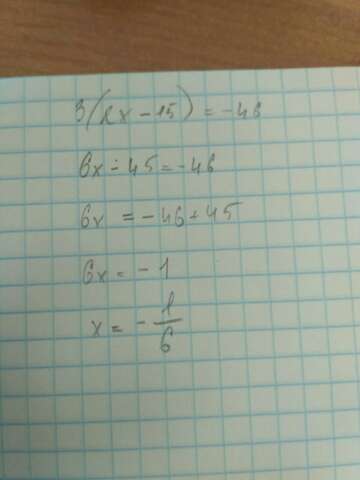 3(2x - 15) = -46
6x - 45 = -46
6x = -46 + 45
6x = -1
x = -1/6